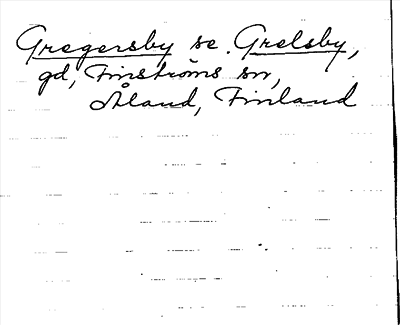 Gregersby se. Grelsby,
gd, Finströms sn,
Åland, Finland